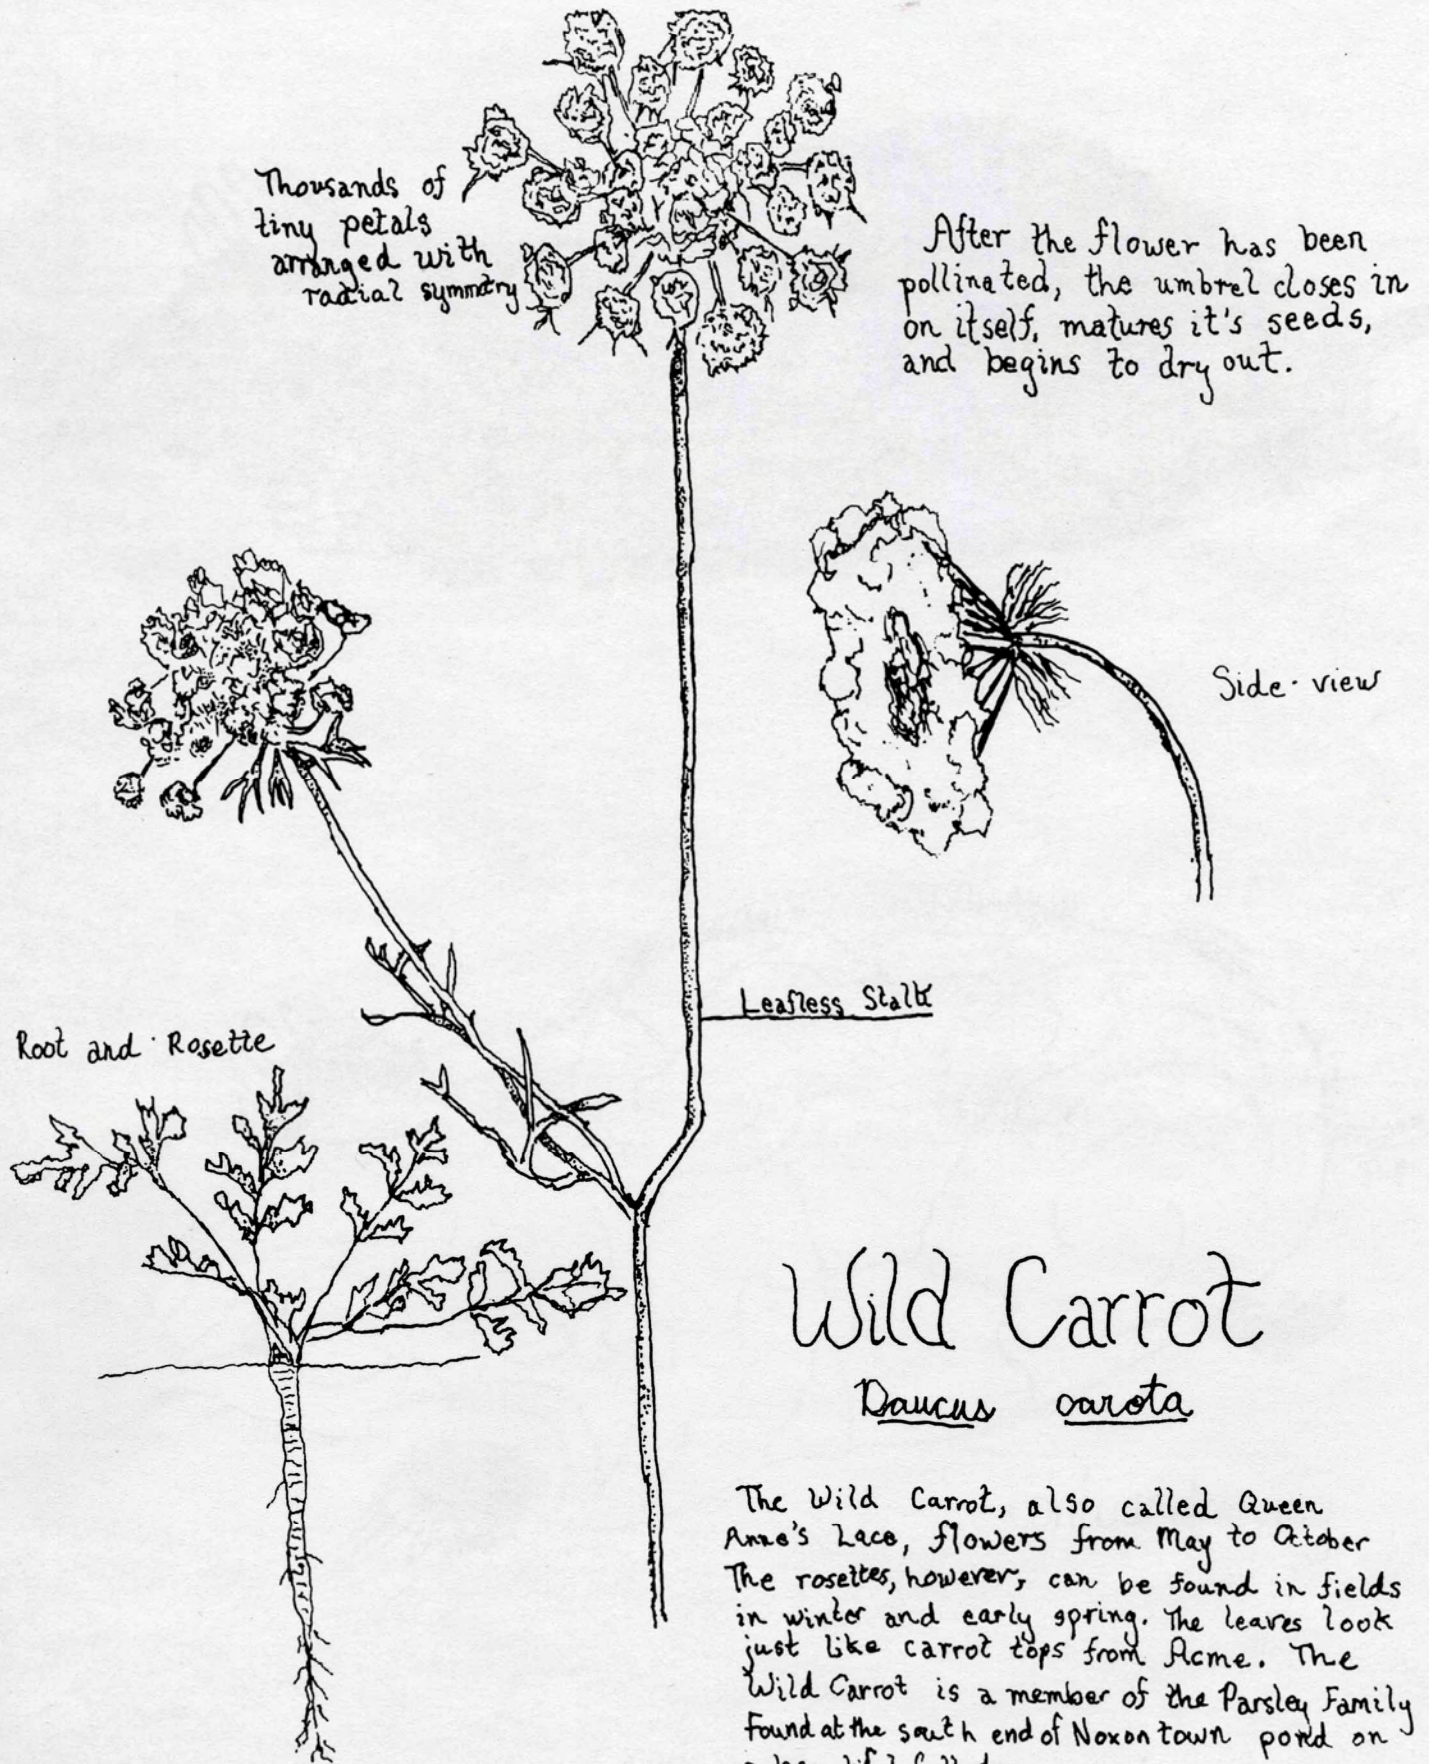 Thousands of
tiny petals
arranged with
radial symmetry
After the flower has been
pollinated, the umbrel closes in
on itself, matures it's seeds,
and begins to dry out.
Side-view
Leafless Stalk
Root and Rosette
Wild Carrot
Daucus carota
The Wild Carrot, also called Queen
Anne's Lace, flowers from May to October
The rosettes, however, can be found in fields
in winter and early spring. The leaves look
just like carrot tops from Acme. The
Wild Carrot is a member of the Parsley Family
found at the south end of Noxontown pond on